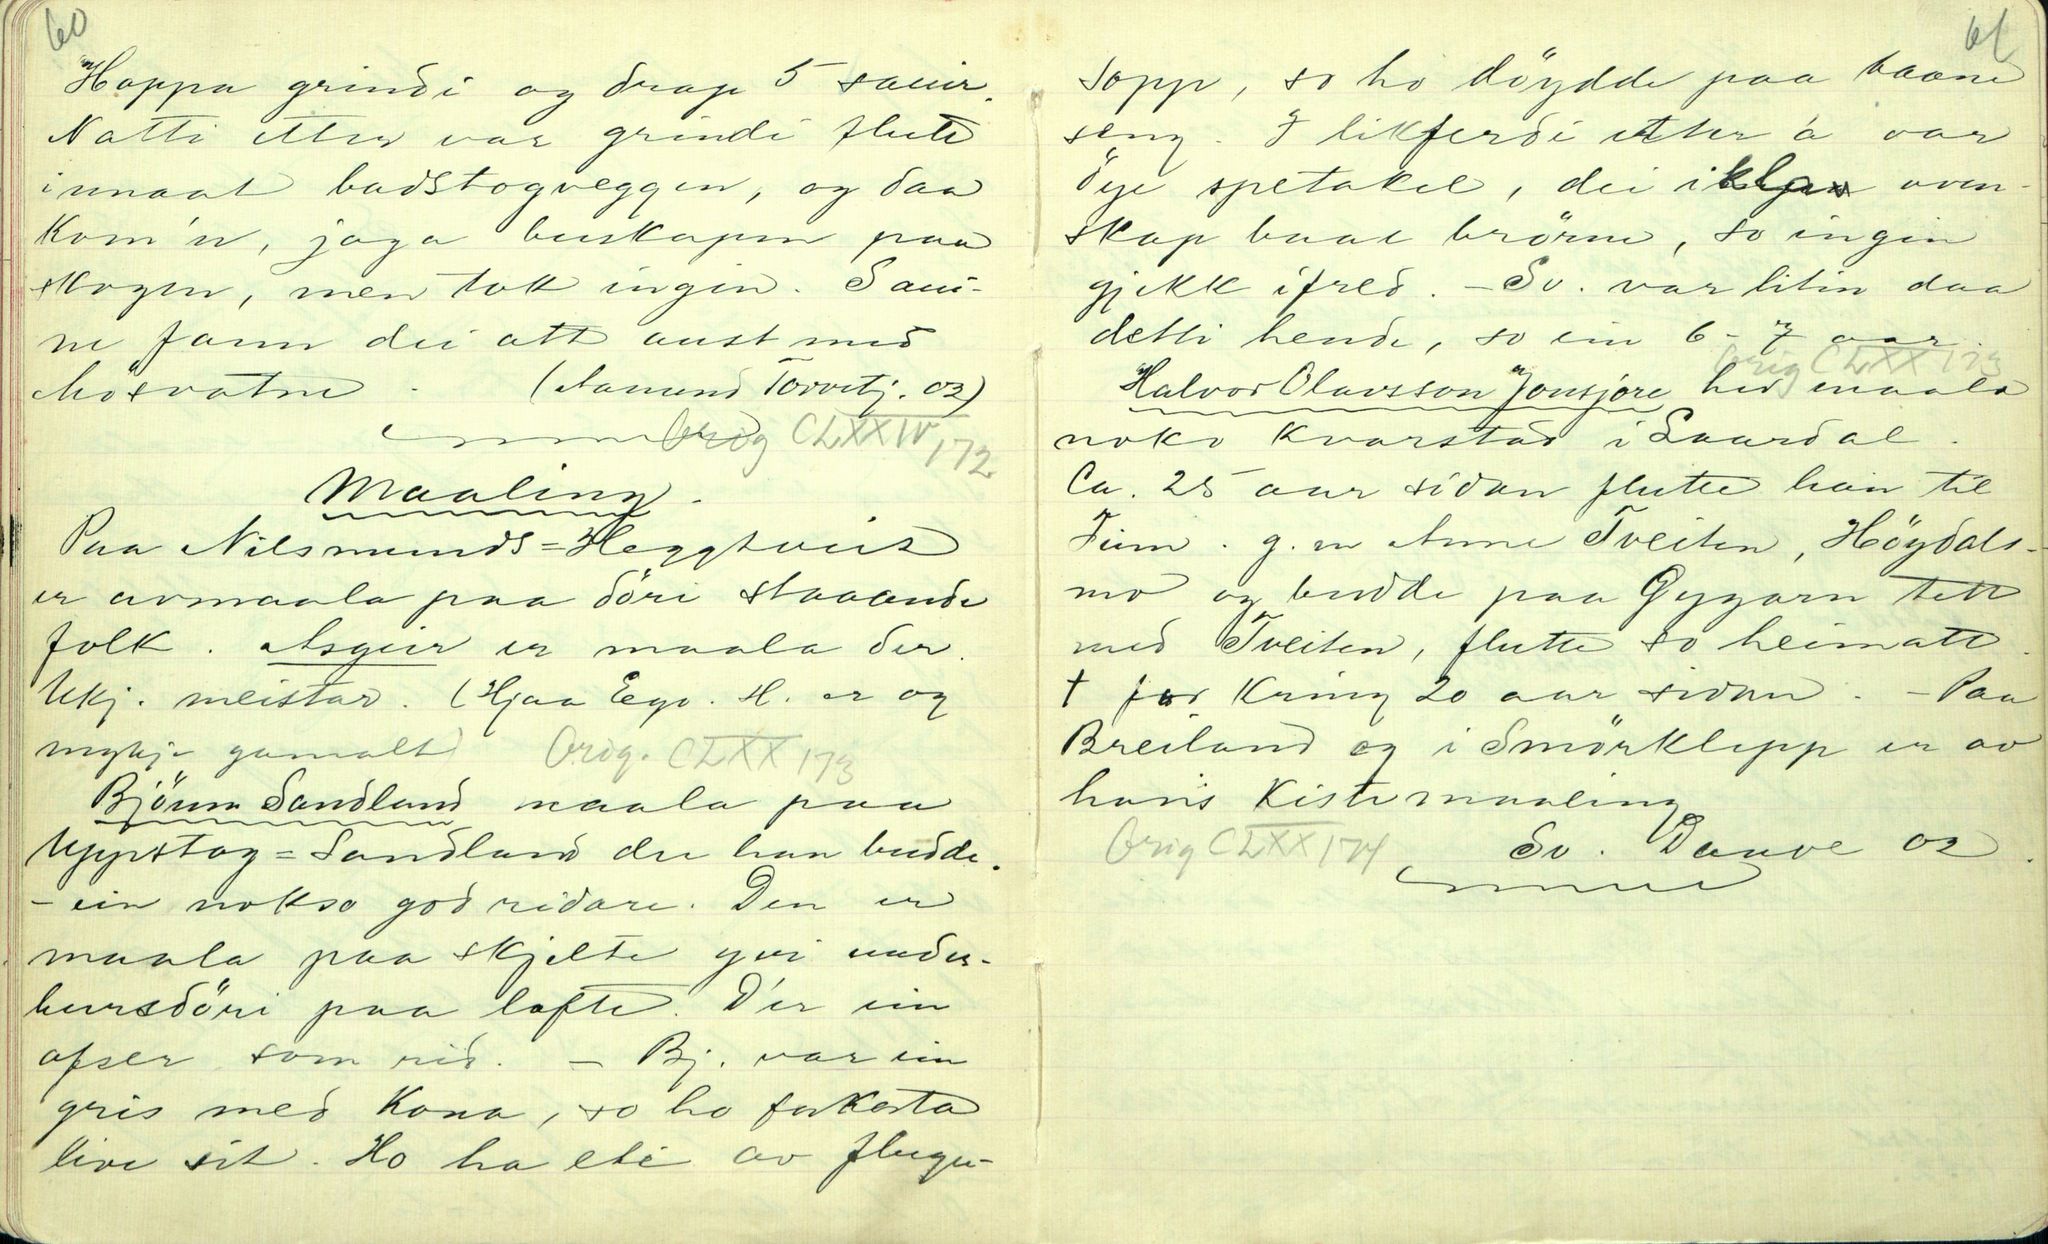 60
Hoppa grindi og drap 5 sauir.
Natti etter var grindi flutt
innaat badstogveggen, og daa
kom'n, jaga buskapen paa
skogen, men tok ingin. Saui-
ne fann dei att aust med
Mösvatne. (Aamund Torvetj. 02)
Orig CLXXIV 172
Maaling.
Paa Nilsmunds=Heggtveit
er avmaala paa döri staaande
folk. Asgeir er maala der.
Ukj. meistar. (Hjaa Ego. H. er og
mykje gamalt)
Orig. CLXX 173
Björnn Sandland maala paa
Uppstog=Sandland der han budde.
- ein nokso god ridare. Den er
maala paa skjelte yvi under-
bursdöri paa lofte. D'er ein
ofser som rid. - Bj. var ein
gris med kona, so ho forkorta
live sit. Ho ha eti av flugu-
61
sopp, so ho döydde paa baane
seng. I likferdi etter 'a var
öye spetakel, dei i oven-
skap baae brörne, so ingin
gjekk ifred. - Sv. var litin daa
detti hende, so ein 6-7 aar.
Orig CLXX 173
Halvor Olavsson Jonsjore hev maala
noko Kvarstad i Laardal.
Ca. 25 aar sidan flutte han til
Tinn. g. m Anne Tveiten, Höydals-
mo og budde paa Gygarn tett
med Tveiten, flutte so heimatt.
† for kring 20 aar sidan. - Paa
Breiland og i Smörklepp er av
hans kistemaaling
Orig CLXX 174
Sv. Dauve 02.